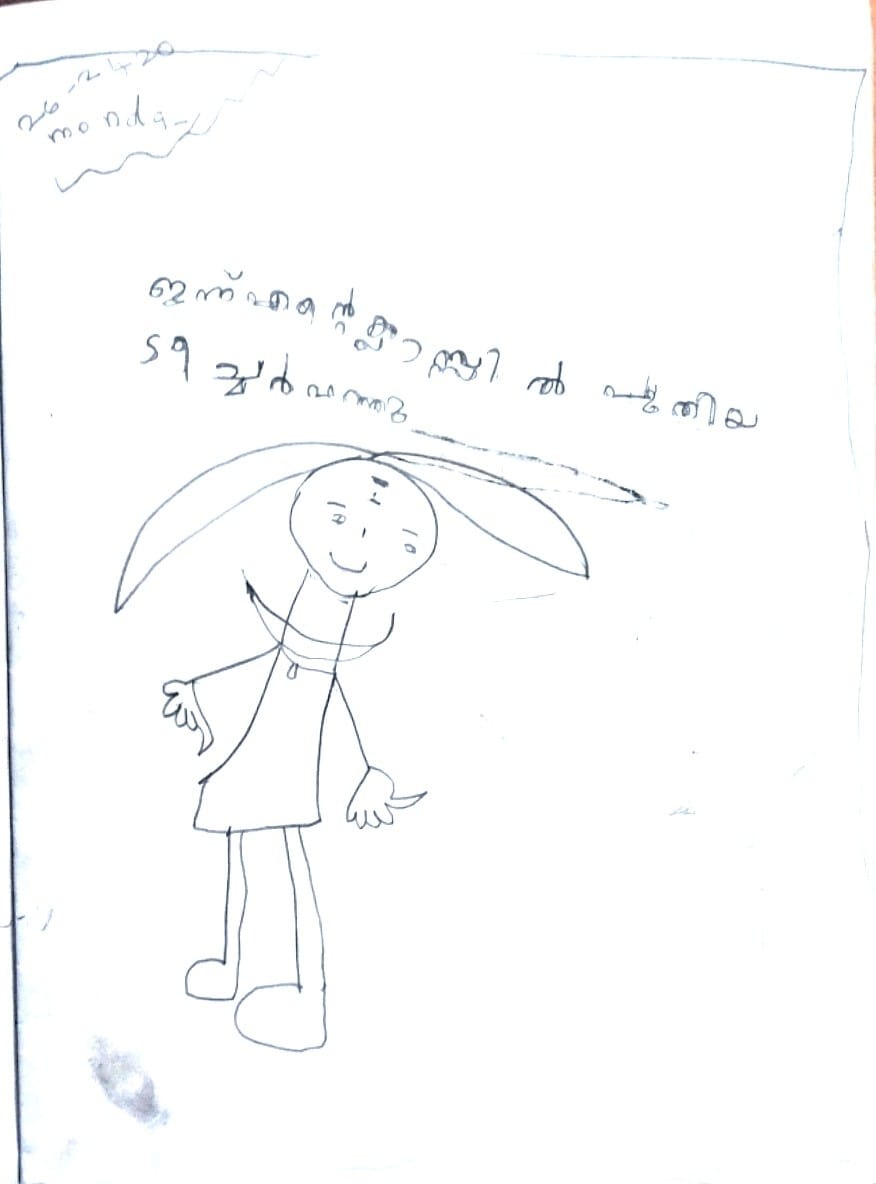 26-2-20
monday
ഇന്ന് എന്റെ ക്ലാസ്സിൽ പുതിയ
ടീച്ചർ വന്നു